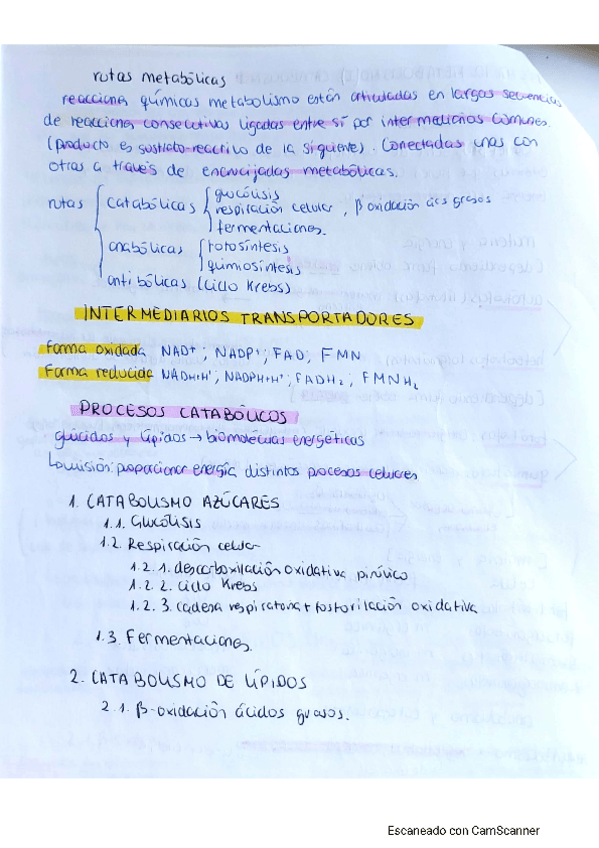 rutas metabólicas
reacciones químicas metabolismo están articuladas en largas secuencias
de reacciones consecutivas ligadas entre sí por intermediarios comunes.
(producto es sustrato-reactivo de la siguiente). Conectadas unas con
otras a través de encrucijadas metabólicas.
rutas catabólicas glucólisis
respiración celular, β oxidación ács grasos
fermentaciones.
anabólicas fotosíntesis
quimiosíntesis
antibólicas (ciclo Krebs)
INTERMEDIARIOS TRANSPORTADORES
Forma oxidada NAD+; NADP+; FAD; FMN
Forma reducida NADH+H+; NADPH+H+; FADH2; FMNH2
PROCESOS CATABÓLICOS
glúcidos y lípidos → biomoléculas energéticas
↳ misión: proporcionar energía distintos procesos celulares
1. CATABOLISMO AZÚCARES
1.1. Glucólisis
1.2. Respiración celular
1.2.1. descarboxilación oxidativa pirúvico
1.2.2. ciclo Krebs
1.2.3. cadena respiratoria + fosforilación oxidativa
1.3. Fermentaciones.
2. CATABOLISMO DE LÍPIDOS
2.1. β-oxidación ácidos grasos.
Escaneado con CamScanner